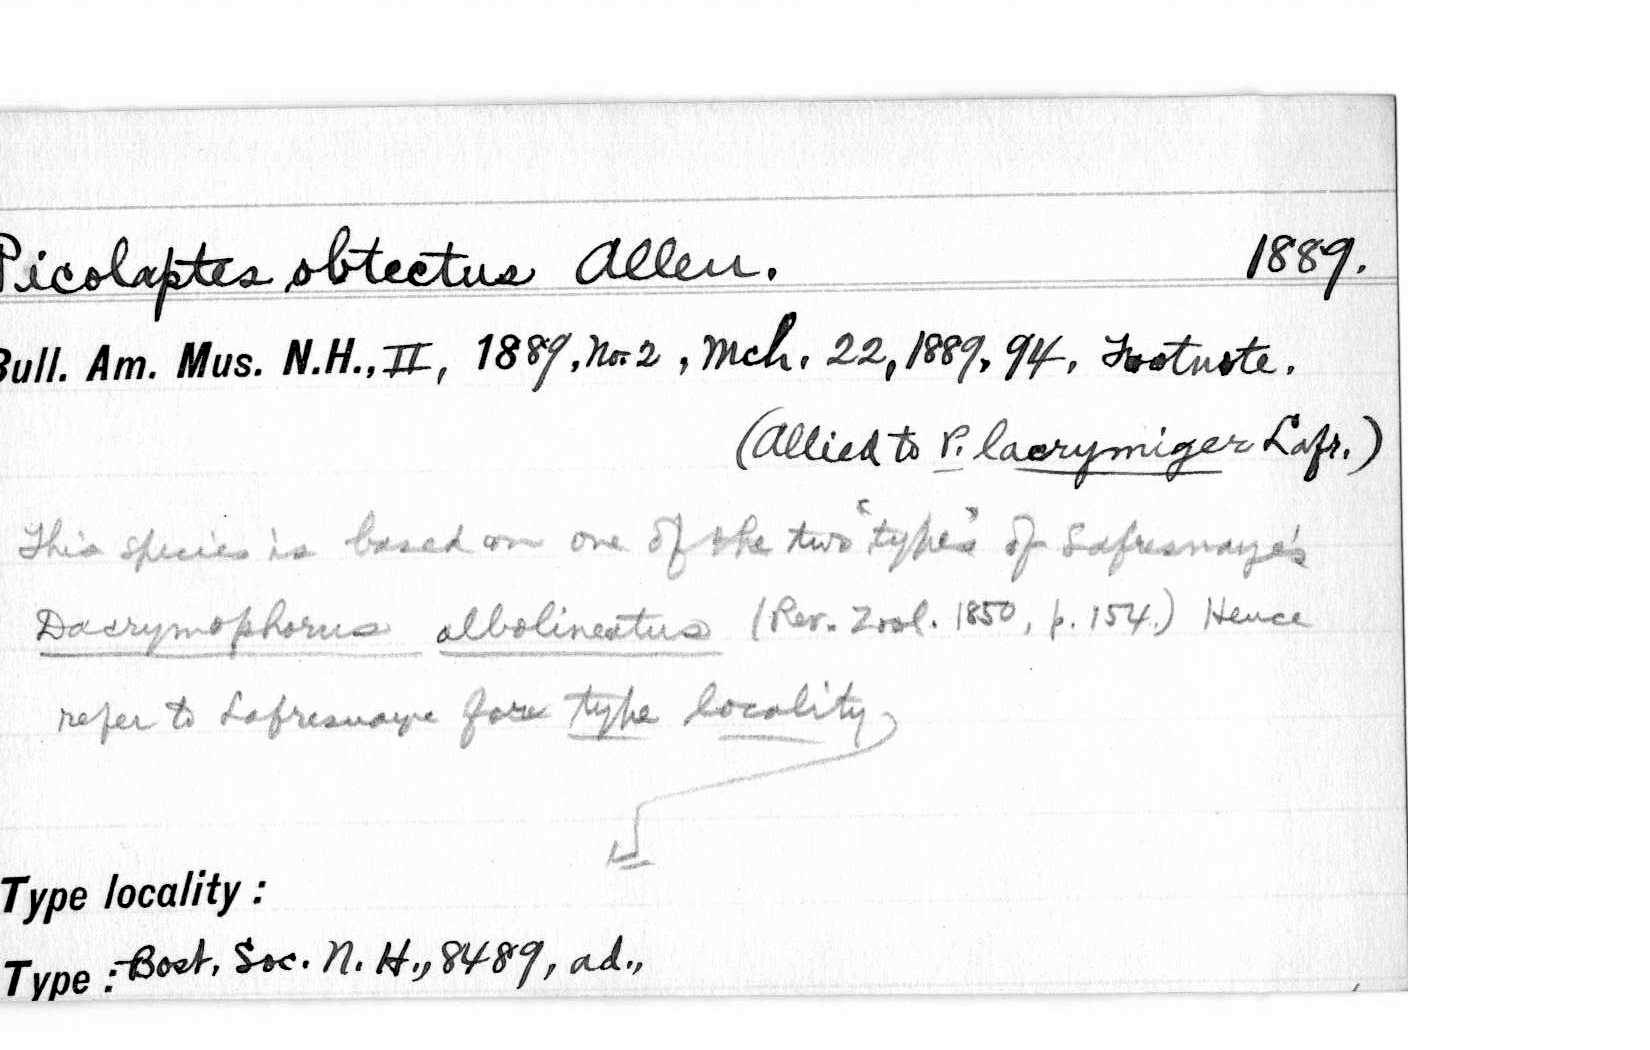 Picolaptes obtectus Allen. 1889.
Bull. Am. Mus. N.H., II, 1889, No. 2, Mch. 22, 1889, 94. Footnote.
(Allied to P. lacrymiger Lafr.)
This species is based on one of the two "types" of Lafresnaye's
Dacrymophorus albolineatus (Rev. Zool. 1850, p. 154.) Hence
refer to Lafresnaye for type locality
Type locality :
Type : Bost. Soc. N. H., 8489, ad.,